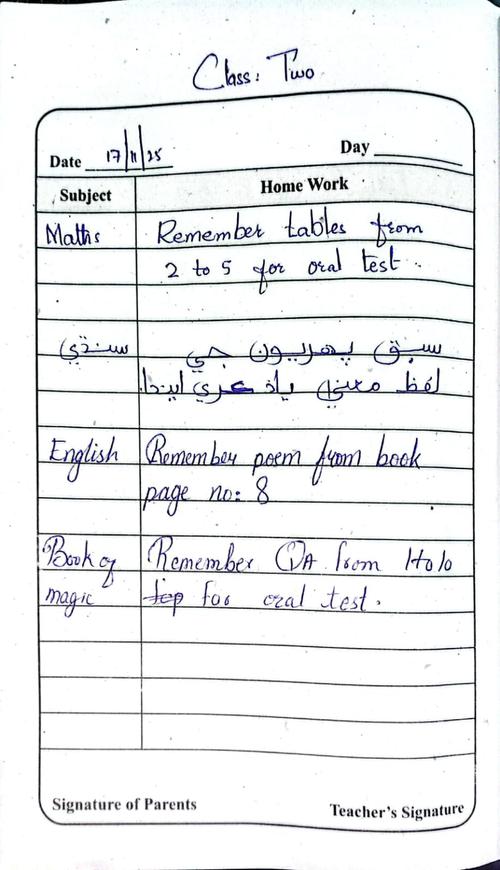 Class: Two
Date 17/11/25 Day
Subject Home Work
Maths Remember tables from
2 to 5 for oral test.
سنڌي سبق پھريون جي
لفظ معنيٰ ياد ڪري ايندا.
English Remember poem from book
page no: 8
Book of Remember QA from 1 to 10
magic for oral test.
Signature of Parents Teacher's Signature